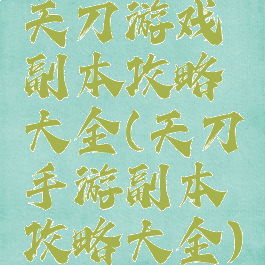 天刀游戏
副本攻略
大全(天刀
手游副本
攻略大全)